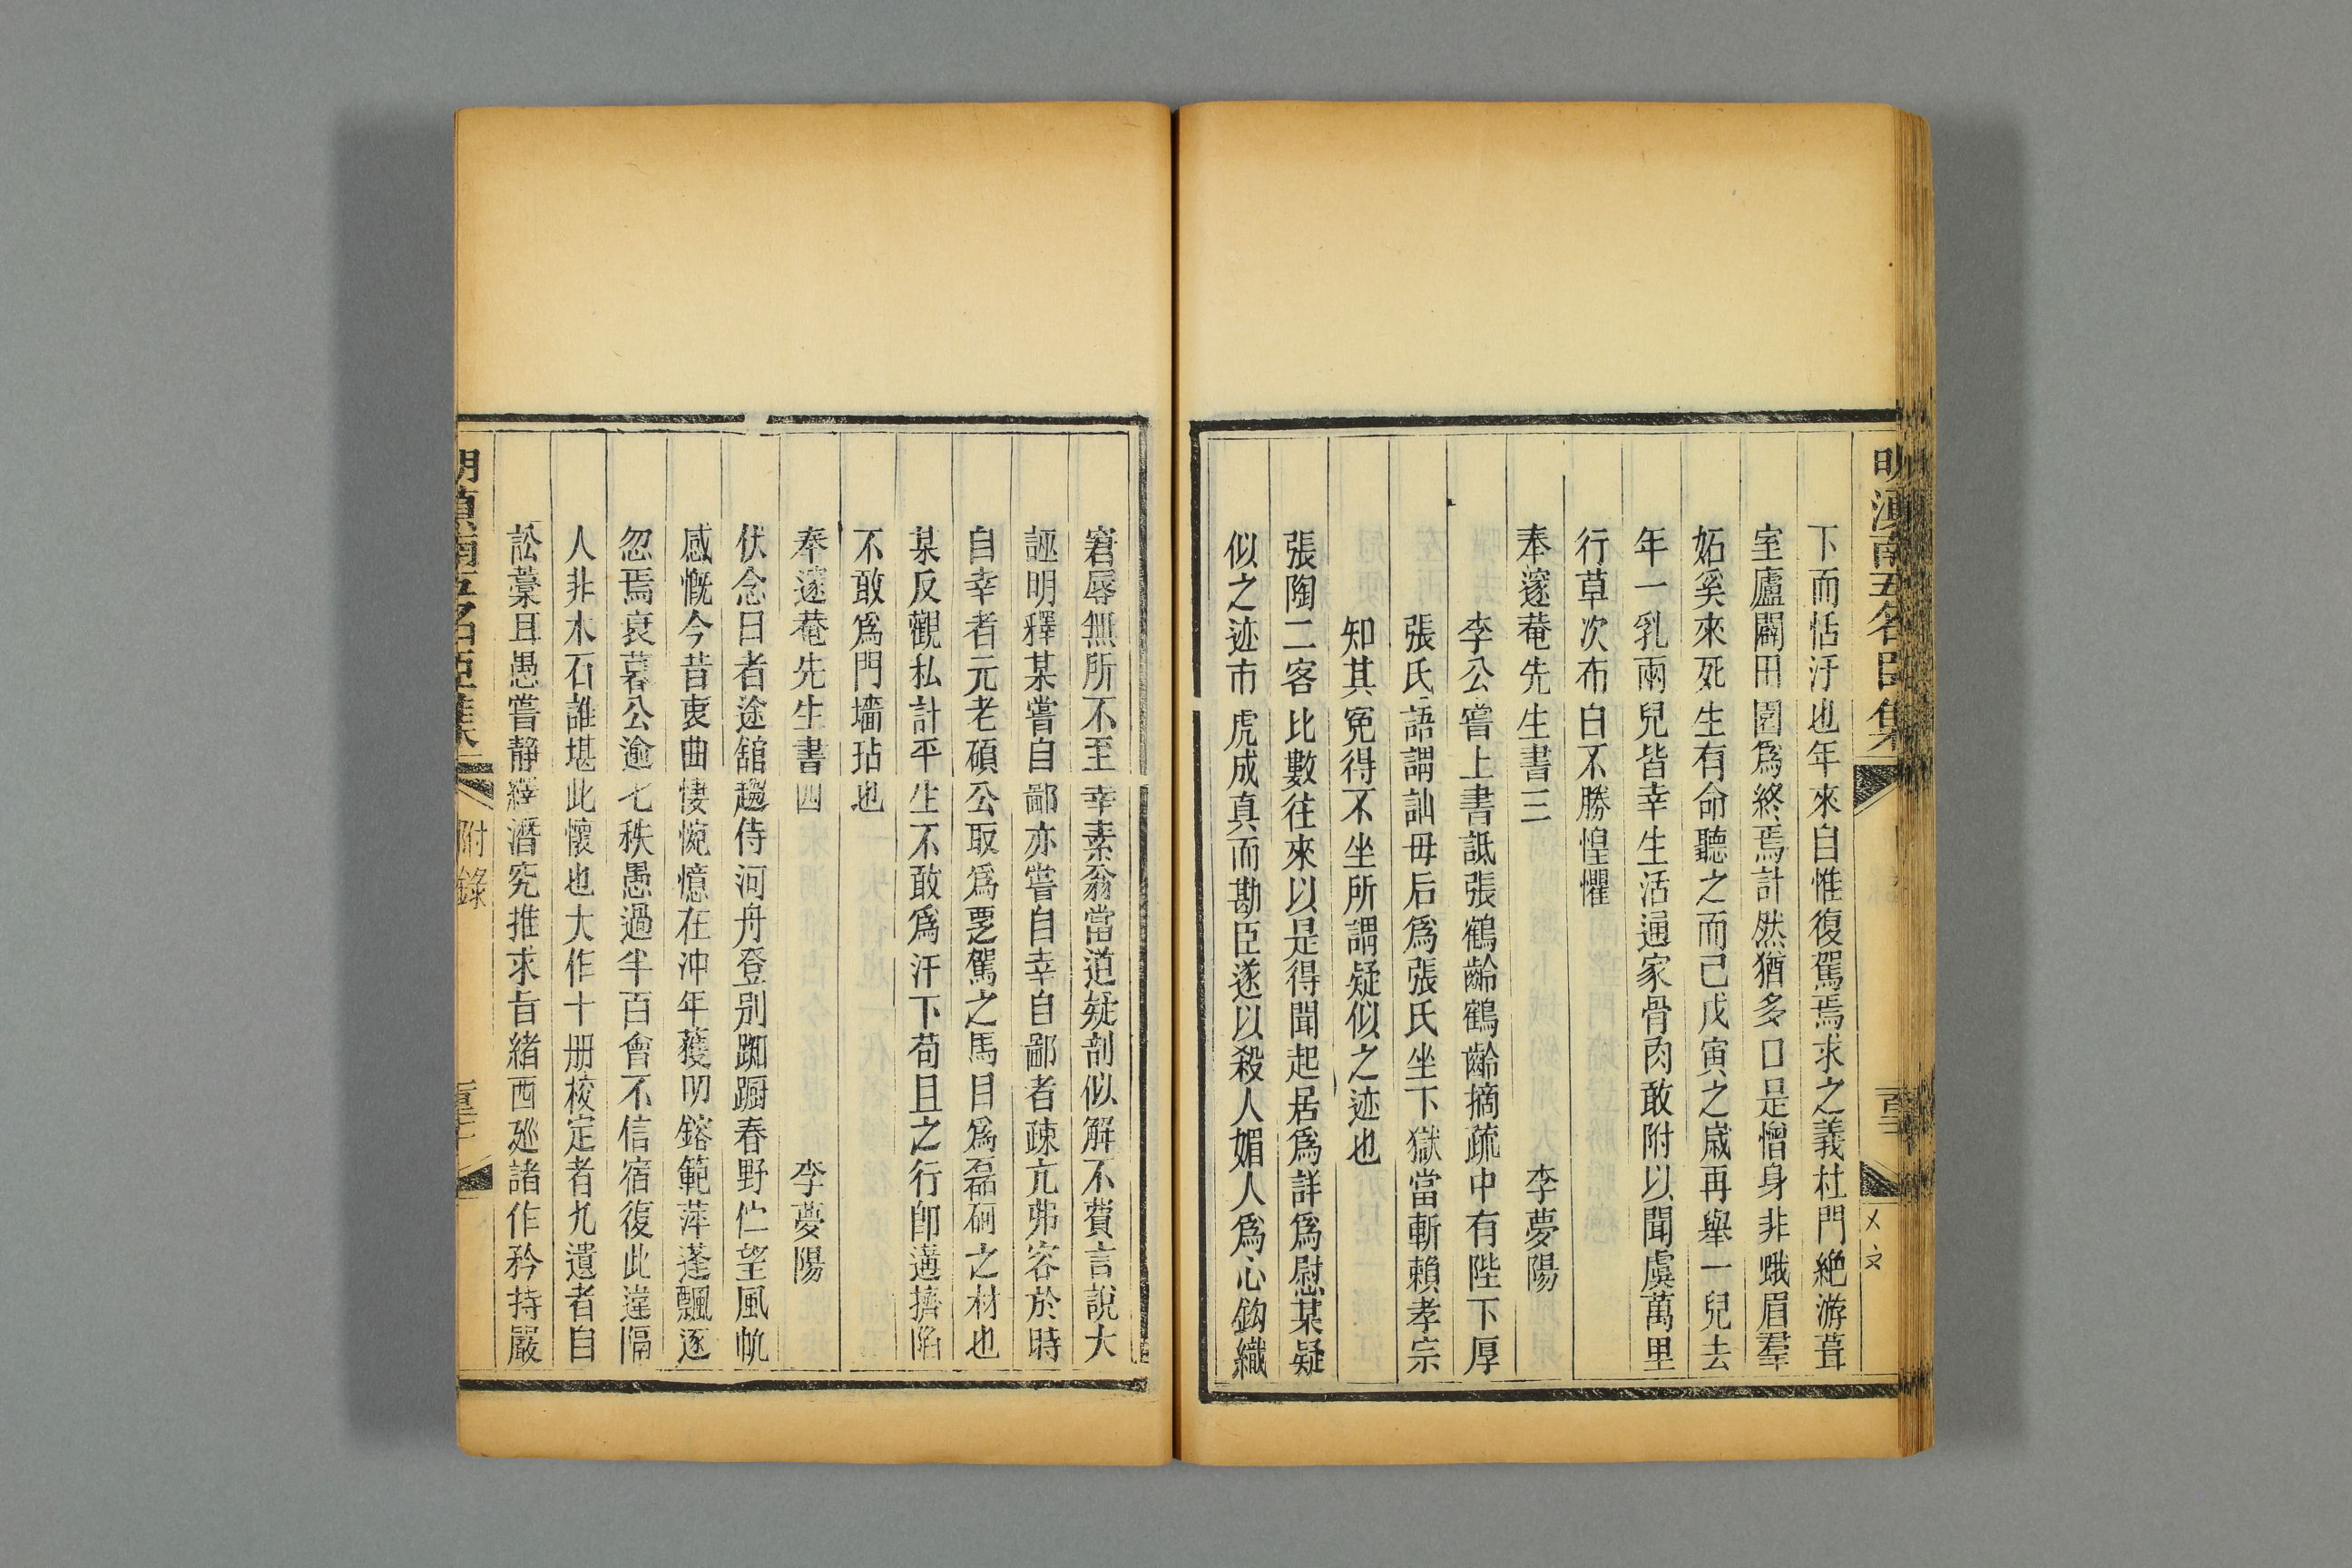 明滇南五名臣集
下而恬汙也年來自惟復駕焉求之義杜門絶游葺
室廬闢田園爲終焉計然猶多口是憎身非蛾眉羣
妬奚來死生有命聽之而已戊寅之歲再舉一兒去
年一乳兩兒皆幸生活通家骨肉敢附以聞虞萬里
行草次布白不勝惶懼
奉邃菴先生書三 李夢陽
李公嘗上書詆張鶴齡鶴齡摘疏中有陛下厚
張氏語謂訕毋后爲張氏坐下獄當斬賴孝宗
知其寃得不坐所謂疑似之迹也
張陶二客比數往來以是得聞起居爲詳爲慰某疑
似之迹市虎成真而勘臣遂以殺人媚人爲心鈎織
窘辱無所不至幸素翁當道疑剖似解不費言說大
誣明釋某嘗自鄙亦嘗自幸自鄙者疎亢弗容於時
自幸者元老碩公取爲覂駕之馬目爲磊砢之材也
某反觀私計平生不敢爲汗下苟且之行卽遘擠陷
不敢爲門墻玷也
奉邃菴先生書四 李夢陽
伏念日者途舘趨侍河舟登别踟蹰春野伫望風帆
感慨今昔衷曲悽惋憶在沖年獲叨鎔範萍蓬飄逐
忽焉衰暮公逾七秩愚過半百會不信宿復此違隔
人非木石誰堪此懷也大作十册校定者九遺者自
訟藁且愚嘗静繹潛究推求旨緒西廵諸作矜持嚴
附錄